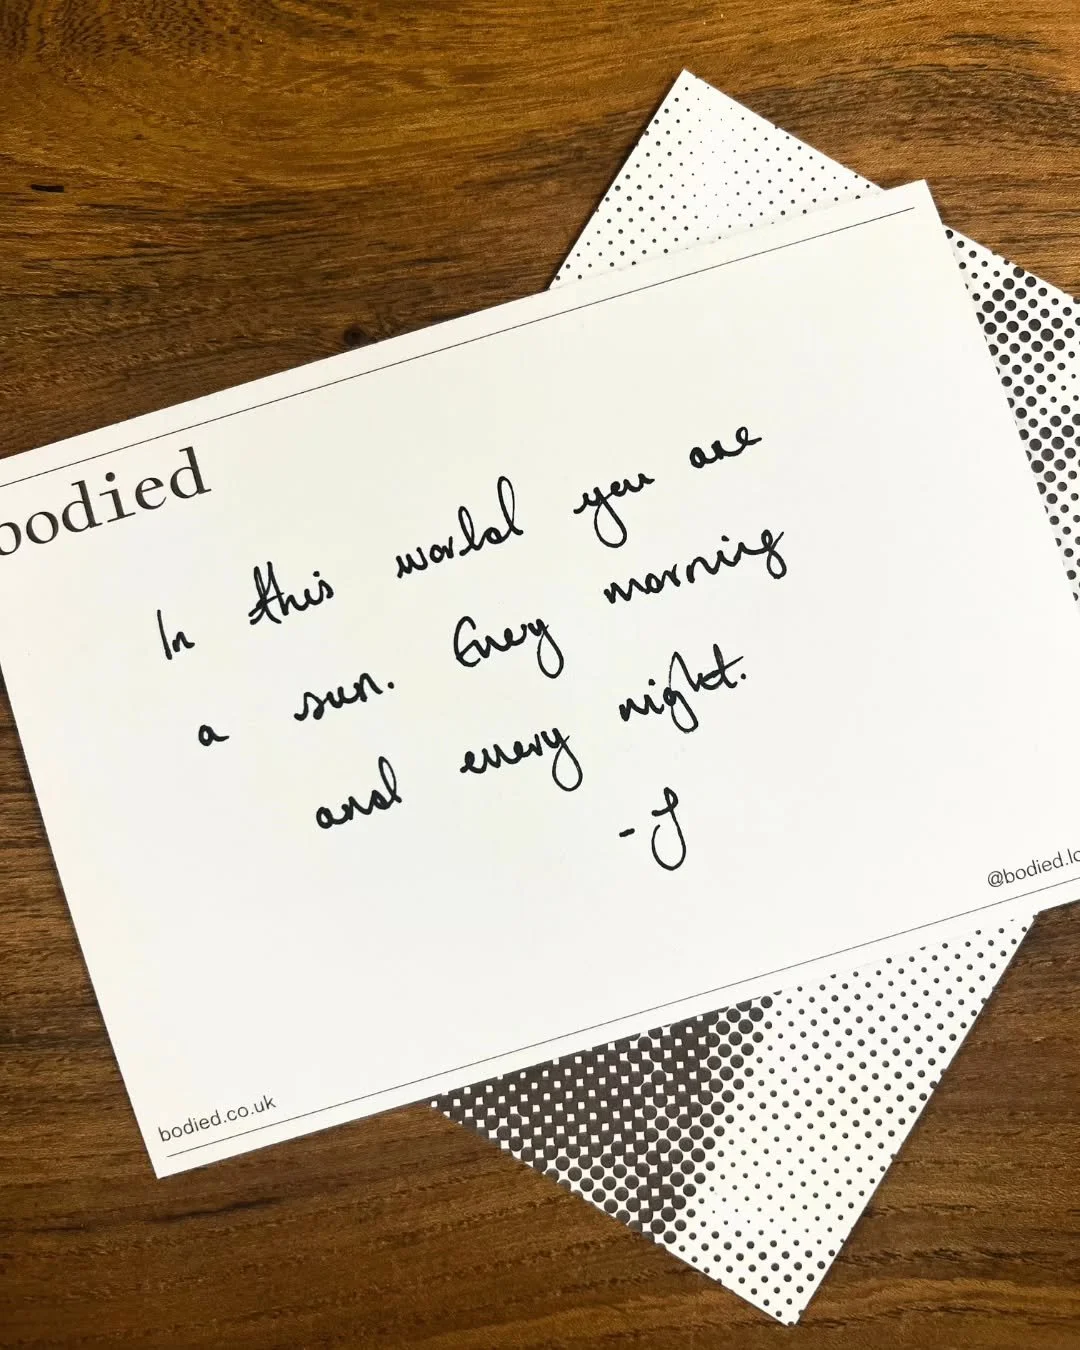 bodied
In this world you are
a sun. Every morning
and every night.
-J
@bodied.lo
bodied.co.uk